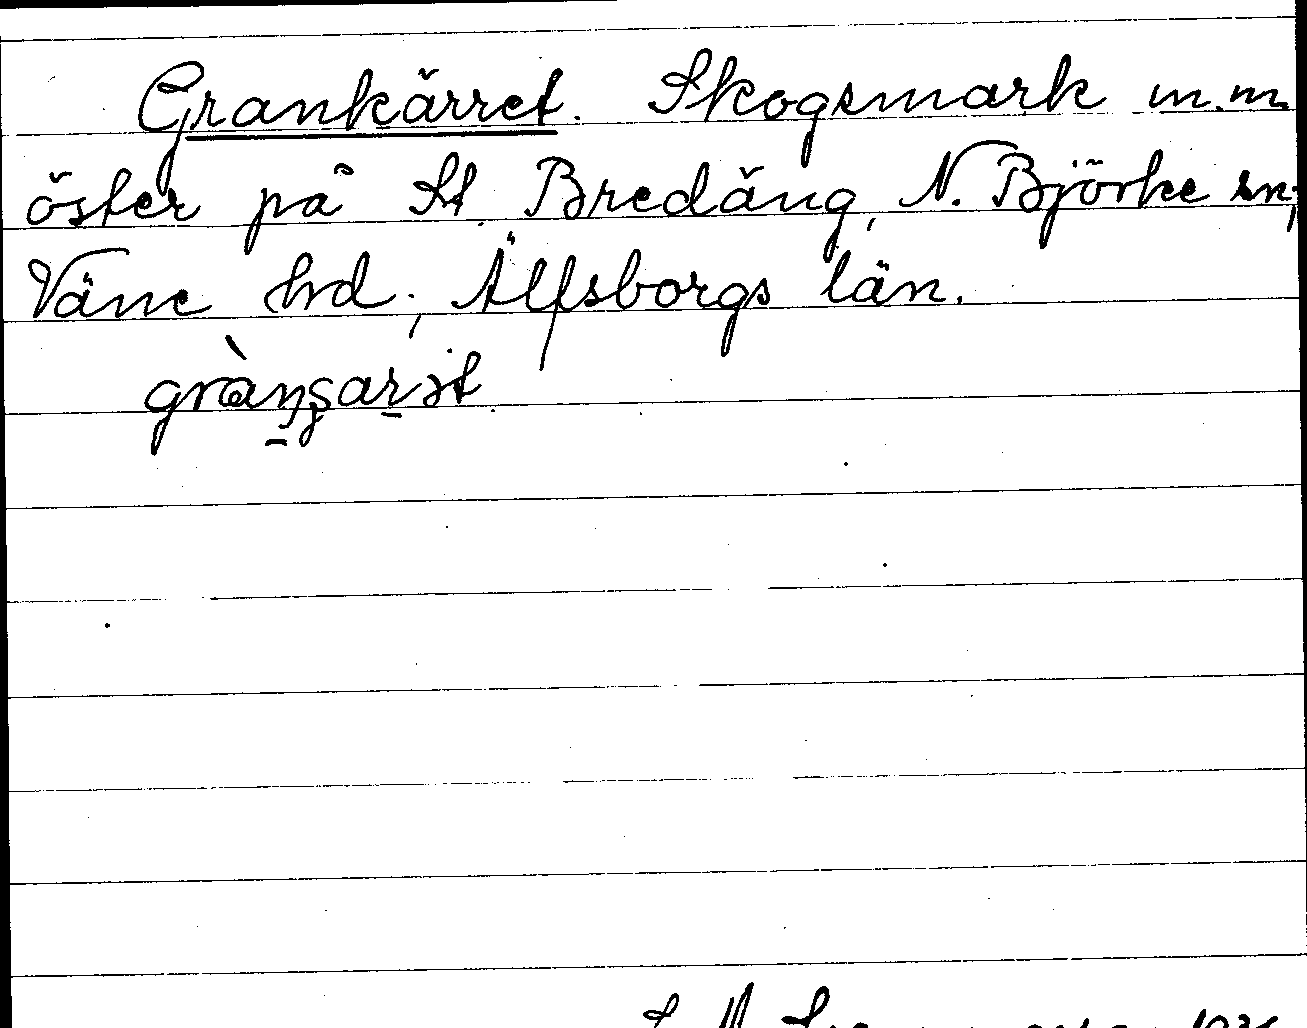 Grankärret. Skogsmark m.m.
öster på St. Bredäng, N. Björke sn,
Väne hd, Älfsborgs län.